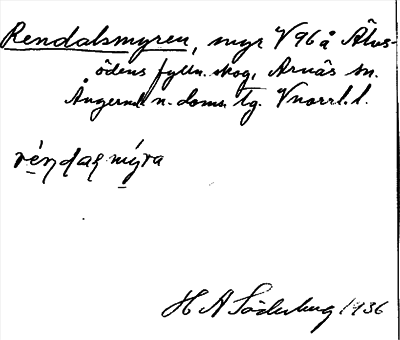 Rendalsmyren, myr V 96 å Älvs-
ödens fylln. skog, Arnäs sn.
Ångerml. n. doms. tg. Vnorrl. l.
réndas mýra
H A Söderberg 1936